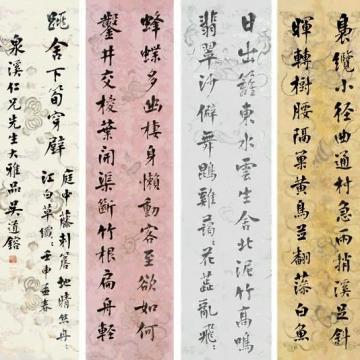 裊纜小徑曲通村急雨捎溪足斜
暉轉樹腰隔巢黃鳥並翻藻白魚
日出籬東水雲生舍北泥竹高鳴
翡翠沙僻舞鵾雞藹〻花蕊亂飛〻
蜂蝶多幽棲身懶動客至欲如何
鑿井交椶葉開渠斷竹根扁舟輕
跳舍下筍穿壁
庭中藤刺簷地晴絲冉〻
江白草纖〻壬申孟春
泉溪仁兄先生大雅品吳道鎔